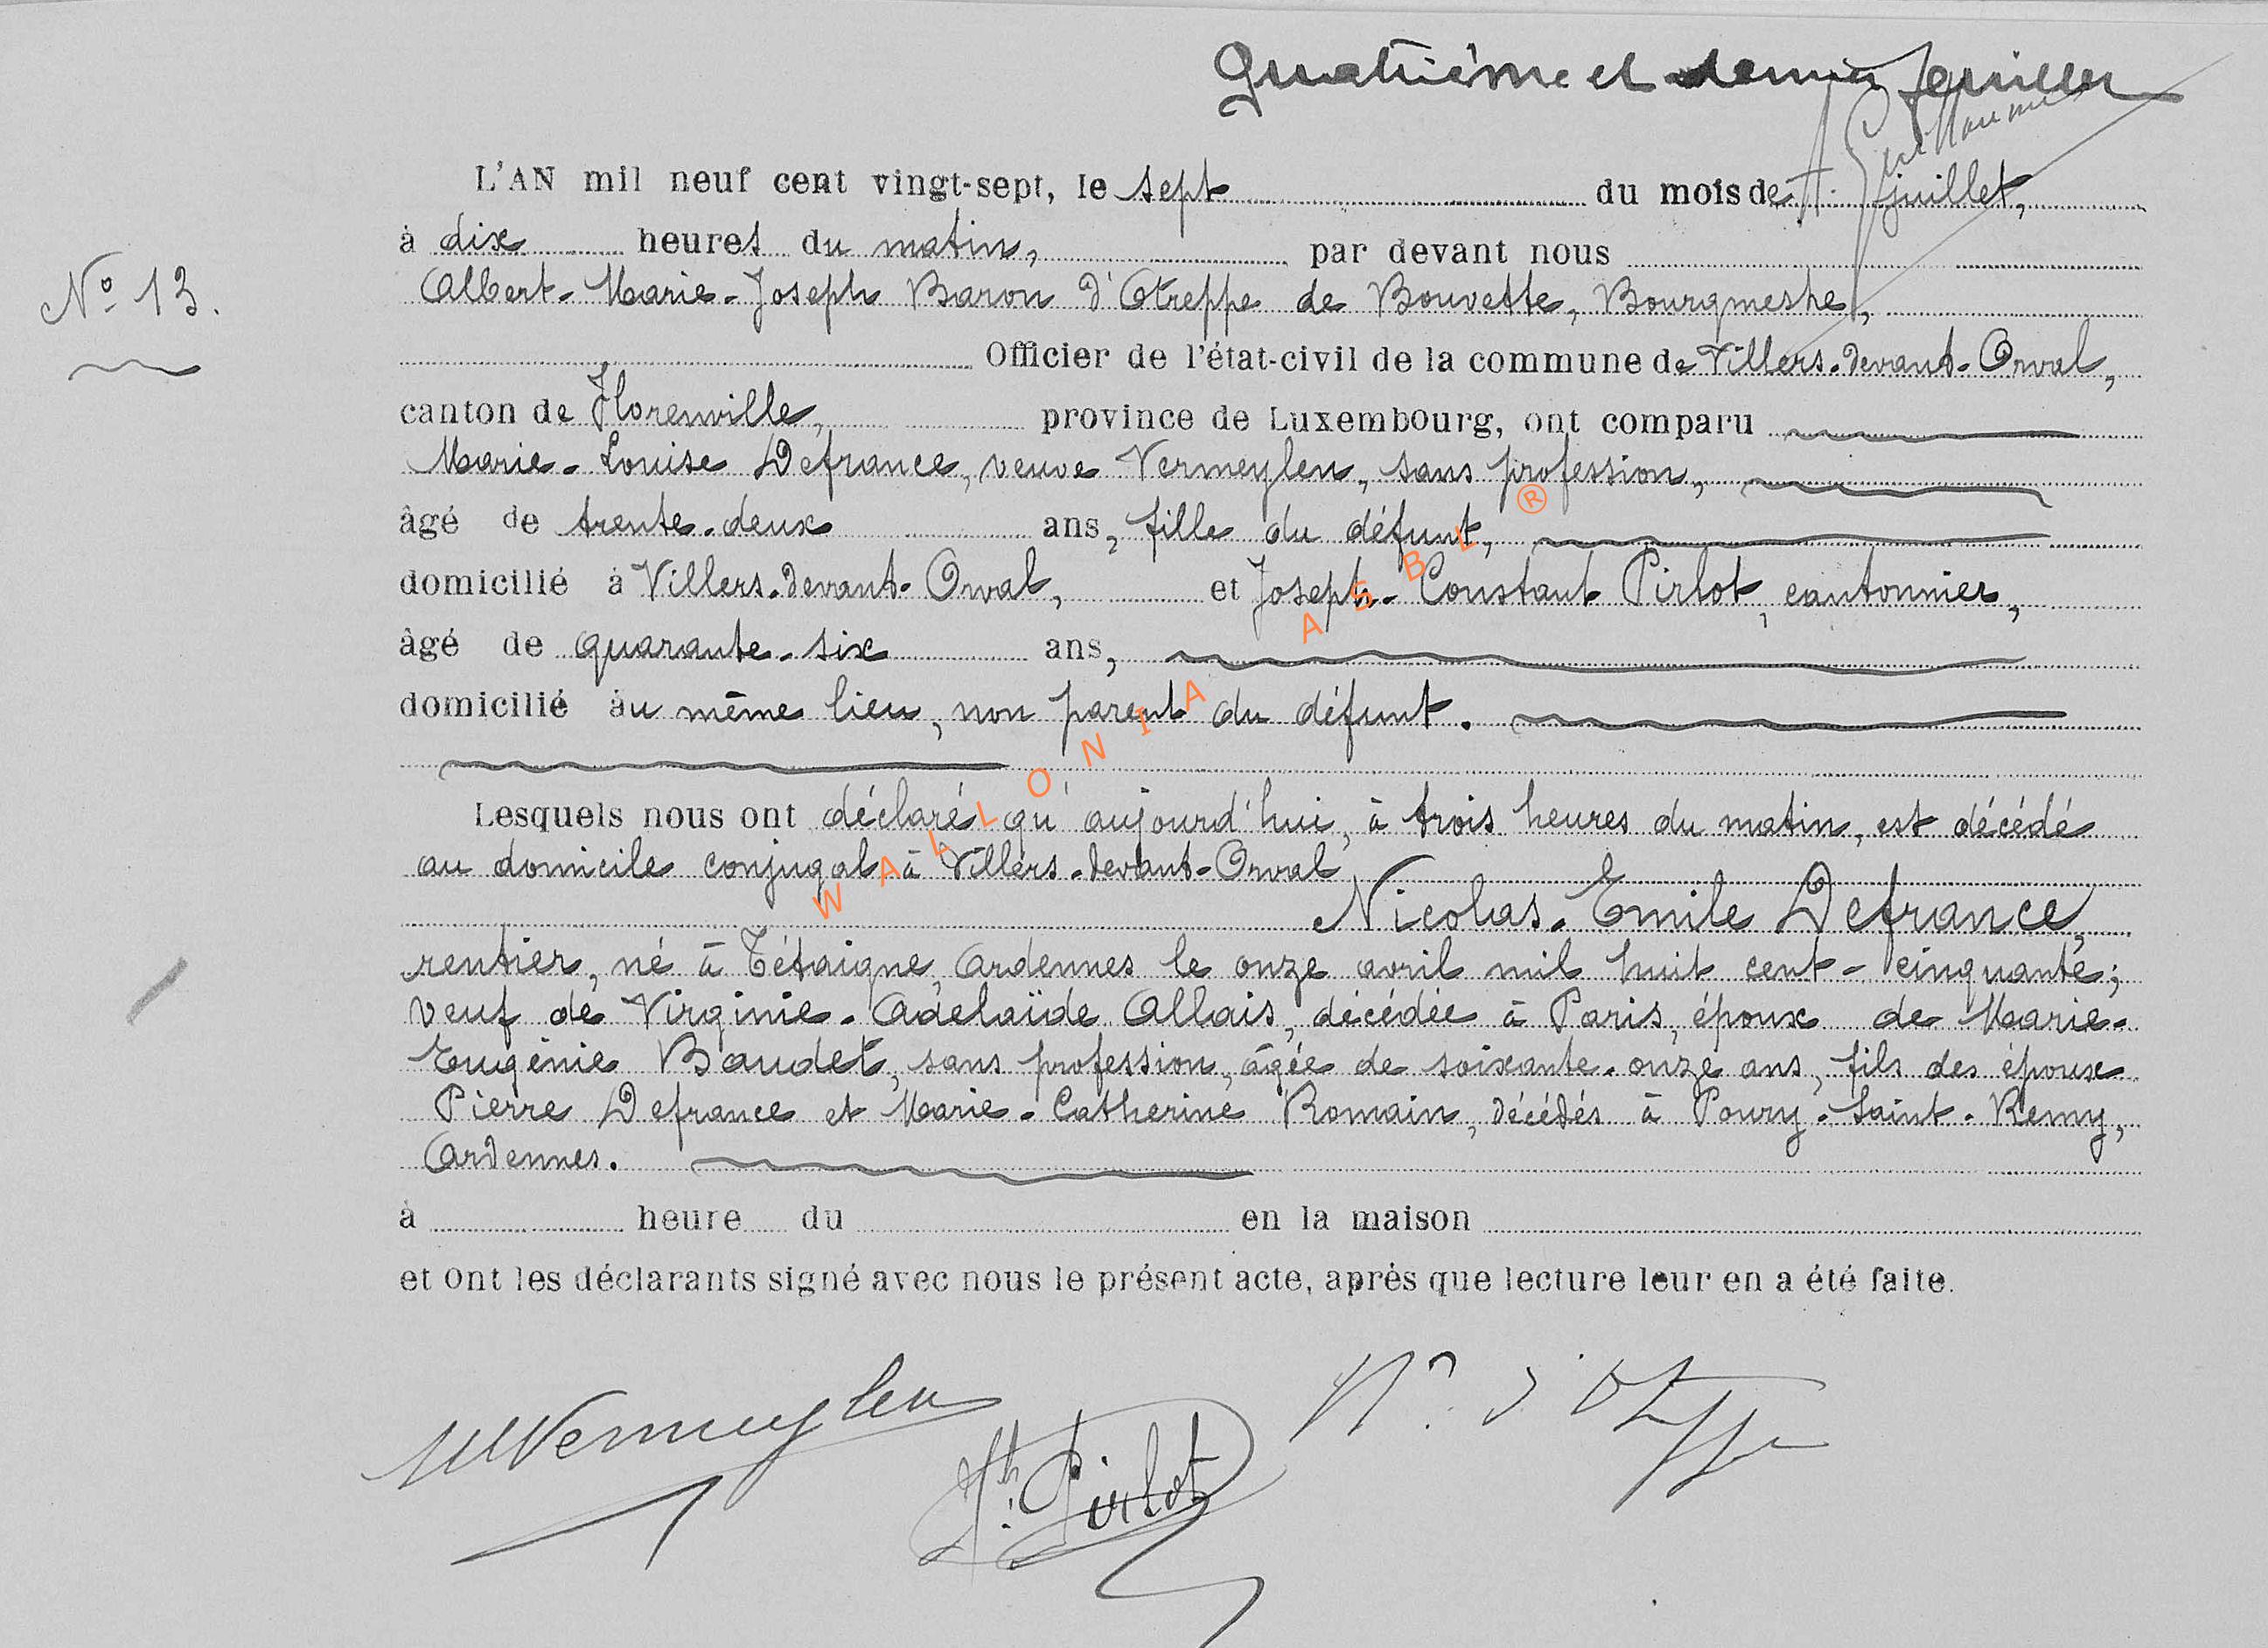 Quatrième et dernier feuillet
A. Guillaume
L'AN mil neuf cent vingt-sept, le sept du mois de juillet,
à dix heures du matin, par devant nous
N° 13.
Albert-Marie-Joseph Baron d'Otreppe de Bouvette, Bourgmestre,
Officier de l'état-civil de la commune de Villers-devant-Orval,
canton de Florenville, province de Luxembourg, ont comparu
Marie-Louise Defrance, veuve Vermeylen, sans profession,
âgé de trente-deux ans, fille du défunt,
domicilié à Villers-devant-Orval, et Joseph-Constant Pirlot, cantonnier,
âgé de quarante-six ans,
domicilié au même lieu, non parent du défunt.
Lesquels nous ont déclaré qu'aujourd'hui, à trois heures du matin, est décédé
au domicile conjugal à Villers-devant-Orval
Nicolas-Emile Defrance,
rentier, né à Tétaigne, Ardennes le onze avril mil huit cent-cinquante;
veuf de Virginie-Adélaïde Allais, décédée à Paris, époux de Marie-
Eugénie Baudet, sans profession, âgée de soixante-onze ans, fils des époux
Pierre Defrance et Marie-Catherine Romain, décédés à Poury-Saint-Remy,
Ardennes.
à heure du en la maison
et ont les déclarants signé avec nous le présent acte, après que lecture leur en a été faite.
MVermeylen
Jh. Pirlot
d'Otreppe
WALLONIA ASBL ®